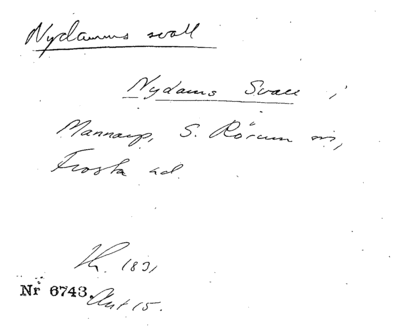 Nydams svall
Nydams Svall i
Mannarp, S. Rörum sn,
Frosta hd.
Lh. 1831
Nr 6743. Akt 15.